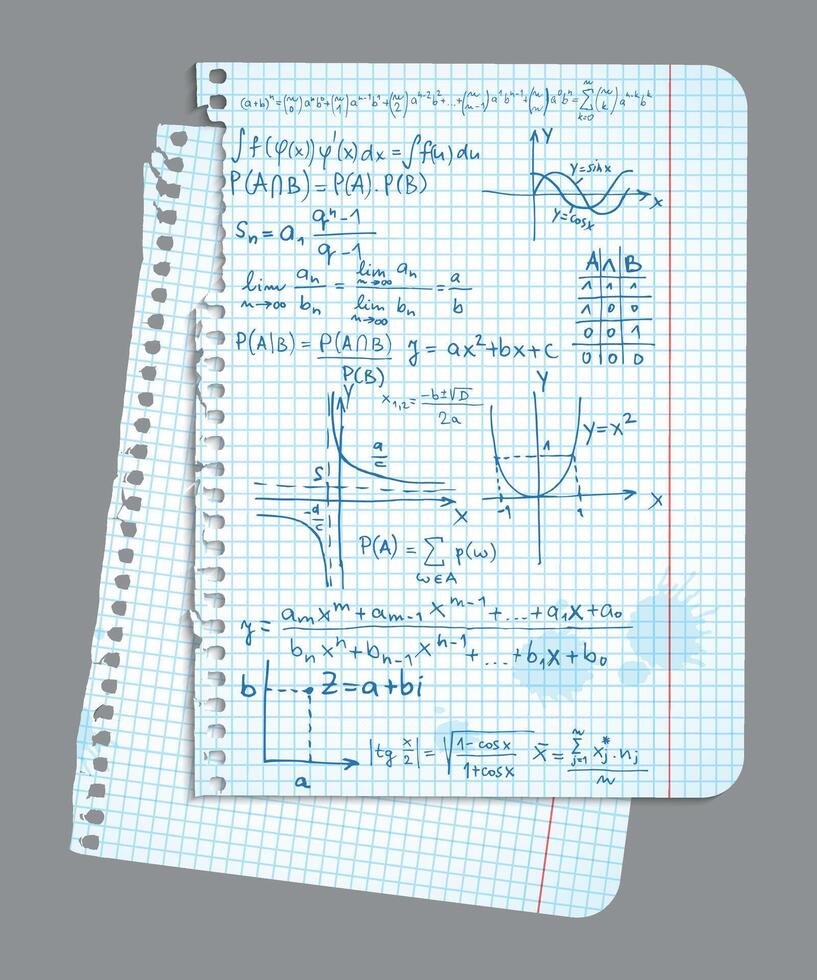 (a+b)ⁿ=(n 0)aⁿb⁰+(n 1)aⁿ⁻¹b¹+(n 2)aⁿ⁻²b²+...+(n n-1)a¹bⁿ⁻¹+(n n)a⁰bⁿ=∑ₖ₌₀ⁿ(n k)aⁿ⁻ᵏbᵏ
∫f(φ(x))φ'(x)dx=∫f(u)du
P(A∩B)=P(A).P(B)
Y
y=sinx
X
y=cosx
Sₙ=a₁ (qⁿ-1)/(q-1)
lim n→∞ aₙ/bₙ = (lim n→∞ aₙ)/(lim n→∞ bₙ) = a/b
A ∧ B
1 1 1
1 0 0
0 0 1
0 0 0
P(A|B)=P(A∩B)/P(B)
y=ax²+bx+c
x₁,₂=(-b±√D)/2a
Y
a/c
S
-d/c
X
Y
y=x²
1
-1
1
X
P(A)=∑ ω∈A p(ω)
y=(aₘxᵐ+aₘ₋₁xᵐ⁻¹+...+a₁x+a₀)/(bₙxⁿ+bₙ₋₁xⁿ⁻¹+...+b₁x+b₀)
b
Z=a+bi
a
|tg x/2|=√((1-cosx)/(1+cosx))
x̄=(∑ⱼ₌₁ⁿ xⱼ*.nⱼ)/n